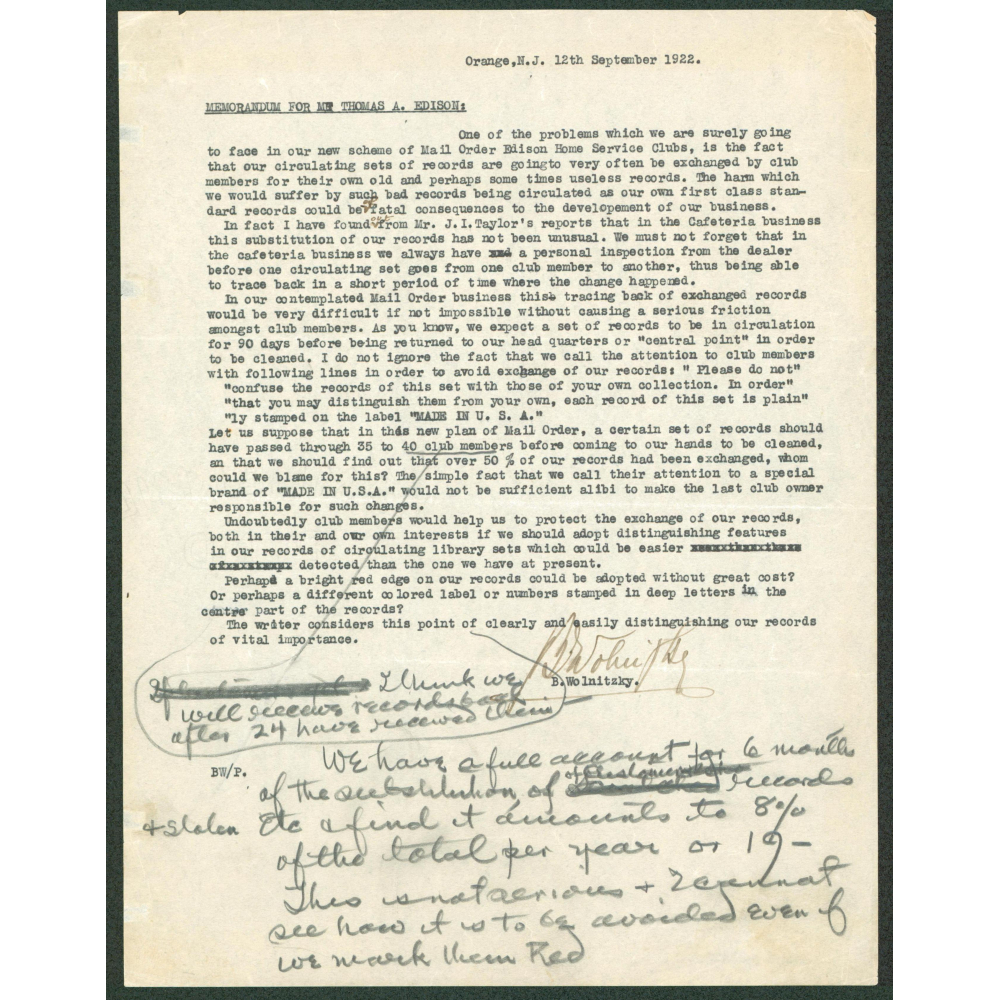 Orange,N.J. 12th September 1922.
MEMORANDUM FOR MR THOMAS A. EDISON:
One of the problems which we are surely going
to face in our new scheme of Mail Order Edison Home Service Clubs, is the fact
that our circulating sets of records are goingto very often be exchanged by club
members for their own old and perhaps some times useless records. The harm which
we would suffer by such bad records being circulated as our own first class stan-
dard records could be of fatal consequences to the developement of our business.
In fact I have found out from Mr. J.I.Taylor's reports that in the Cafeteria business
this substitution of our records has not been unusual. We must not forget that in
the cafeteria business we always have a personal inspection from the dealer
before one circulating set goes from one club member to another, thus being able
to trace back in a short period of time where the change happened.
In our contemplated Mail Order business this tracing back of exchanged records
would be very difficult if not impossible without causing a serious friction
amongst club members. As you know, we expect a set of records to be in circulation
for 90 days before being returned to our head quarters or "central point" in order
to be cleaned. I do not ignore the fact that we call the attention to club members
with following lines in order to avoid exchange of our records: " Please do not"
"confuse the records of this set with those of your own collection. In order"
"that you may distinguish them from your own, each record of this set is plain"
"ly stamped on the label "MADE IN U. S. A."
Let us suppose that in this new plan of Mail Order, a certain set of records should
have passed through 35 to 40 club members before coming to our hands to be cleaned,
an that we should find out that over 50 % of our records had been exchanged, whom
could we blame for this? The simple fact that we call their attention to a special
brand of "MADE IN U.S.A." would not be sufficient alibi to make the last club owner
responsible for such changes.
Undoubtedly club members would help us to protect the exchange of our records,
both in their and our own interests if we should adopt distinguishing features
in our records of circulating library sets which could be easier
detected than the one we have at present.
Perhaps a bright red edge on our records could be adopted without great cost?
Or perhaps a different colored label or numbers stamped in deep letters in the
centre part of the records?
The writer considers this point of clearly and easily distinguishing our records
of vital importance.
B Wolnitzky
B.Wolnitzky.
I think we
will receive records back
after 24 have received them
BW/P.
We have a full account for 6 months
of the substitution of records
& Stolen Etc & find it amounts to 8%
of the total per year or
This is not serious & I cannot
see how it is to be avoided even if
we mark them Red